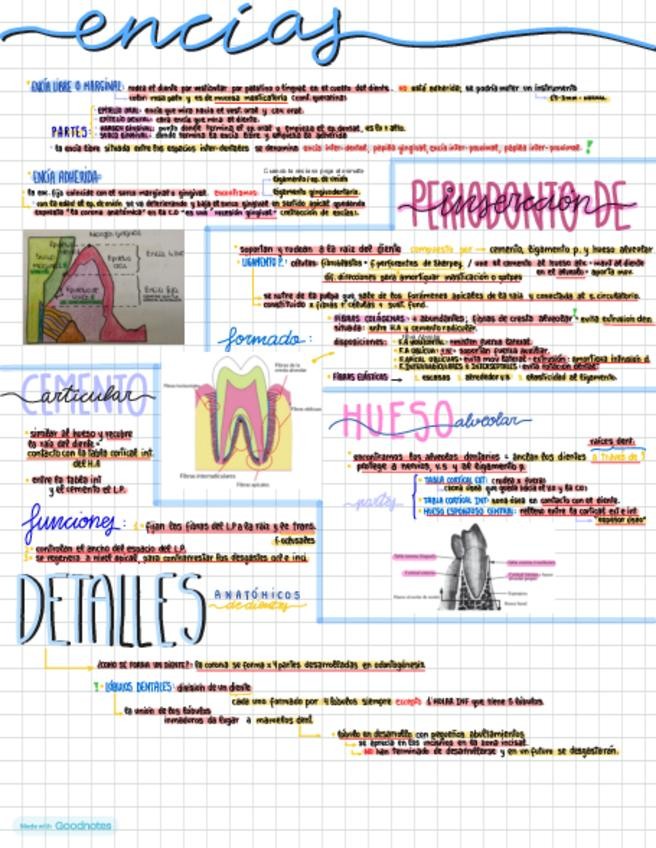 encías
ENCÍA LIBRE O MARGINAL: rodea el diente por vestibular por palatino o lingual en el cuello del diente. NO está adherida; se podría meter un instrumento
color rosa pálido y es de mucosa masticatoria
PARTES:
EPITELIO ORAL: encía que mira hacia el vest. oral y cav. oral.
EPITELIO DENTAL: cara encía que mira al diente.
MARGEN GINGIVAL: punto donde termina el ep. oral y empieza el ep. dental, es lo + alto.
SURCO GINGIVAL: donde termina la encía libre y empieza la adherida
la encía libre situada entre los espacios inter-dentales se denomina encía inter-dental, papila gingival, encía inter-proximal, papila inter-proximal. !
ENCÍA ADHERIDA:
la enc. fija coincide con el surco marginal o gingival. encontramos:
ligamento gingivodentario.
con la edad el ep. de unión se va deteriorando y baja el surco gingival en sentido apical quedando
expuesto "la corona anatómica" en la C.O "es una recesión gingival" (retracción de encías).
PERIODONTO DE
inserción
soportan y rodean a la raíz del diente compuesto por cemento, ligamento p. y hueso alveolar
LIGAMENTO P.: células: fibroblastos
dif. direcciones para amortiguar masticación o golpes
se nutre de la pulpa que sale de los forámenes apicales de la raíz y conectada al s. circulatorio.
constituido x fibras y células y sust. fund.
formado:
FIBRAS COLÁGENAS: + abundantes; fibras de cresta alveolar: evita extrusión den.
situada: entre H.A y cemento radicular.
disposiciones:
F.A HORIZONTAL: resisten fuerza lateral.
F.A OBLICUA: ++ soportan fuerza axilar.
F. INTERRADICULARES E INTERSEPTALES: evita rotación dental
FIBRAS ELÁSTICAS → escasas alrededor v.s elasticidad al ligamento.
Encía libre
Encía fija
Fibras de la cresta alveolar
Fibras horizontales
Fibras oblicuas
Fibras interradiculares
Fibras apicales
CEMENTO
articular
similar al hueso y recubre
la raíz del diente
contacto con la tabla cortical int.
del H.A
entre la tabla int
y el cemento el L.P.
funciones:
fijan las fibras del L.P a la raíz y te trans.
f. oclusales
controlan el ancho del espacio del L.P.
se regenera a nivel apical, para contrarrestar los desgastes ocl e inci.
HUESO
alveolar
encontramos los alvéolos dentarios → anclan los dientes a través de
raíces dent.
protege a nervios, v.s y al ligamento p.
partes
TABLA CORTICAL EXT:
TABLA CORTICAL INT: zona ósea en contacto con el diente.
HUESO ESPONJOSO CENTRAL: relleno entre la cortical ext e int
DETALLES
ANATÓMICOS
de dientes
¿CÓMO SE FORMA UN DIENTE?: la corona se forma x 4 partes desarrolladas en odontogénesis.
! LÓBULOS DENTALES: división de un diente
cada uno formado por 4 lóbulos siempre excepto 1 MOLAR INF que tiene 5 lóbulos.
la unión de los lóbulos
inmaduros da lugar a mamelos dent.
lóbulo en desarrollo con pequeños abultamientos
se aprecia en los incisivos en la zona incisal.
NO han terminado de desarrollarse y en un futuro se desgastarán.
Made with Goodnotes